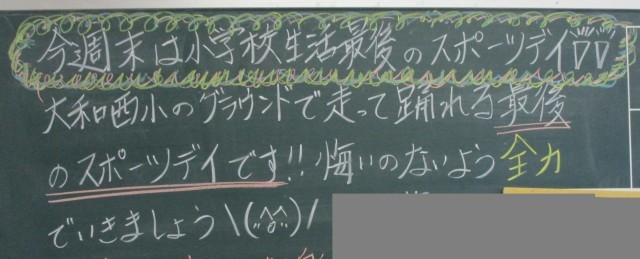 今週末は小学校生活最後のスポーツデイ!!!
大和西小のグラウンドで走って踊れる最後
のスポーツデイです!! 悔いのないよう全力
でいきましょう\(^o^)/